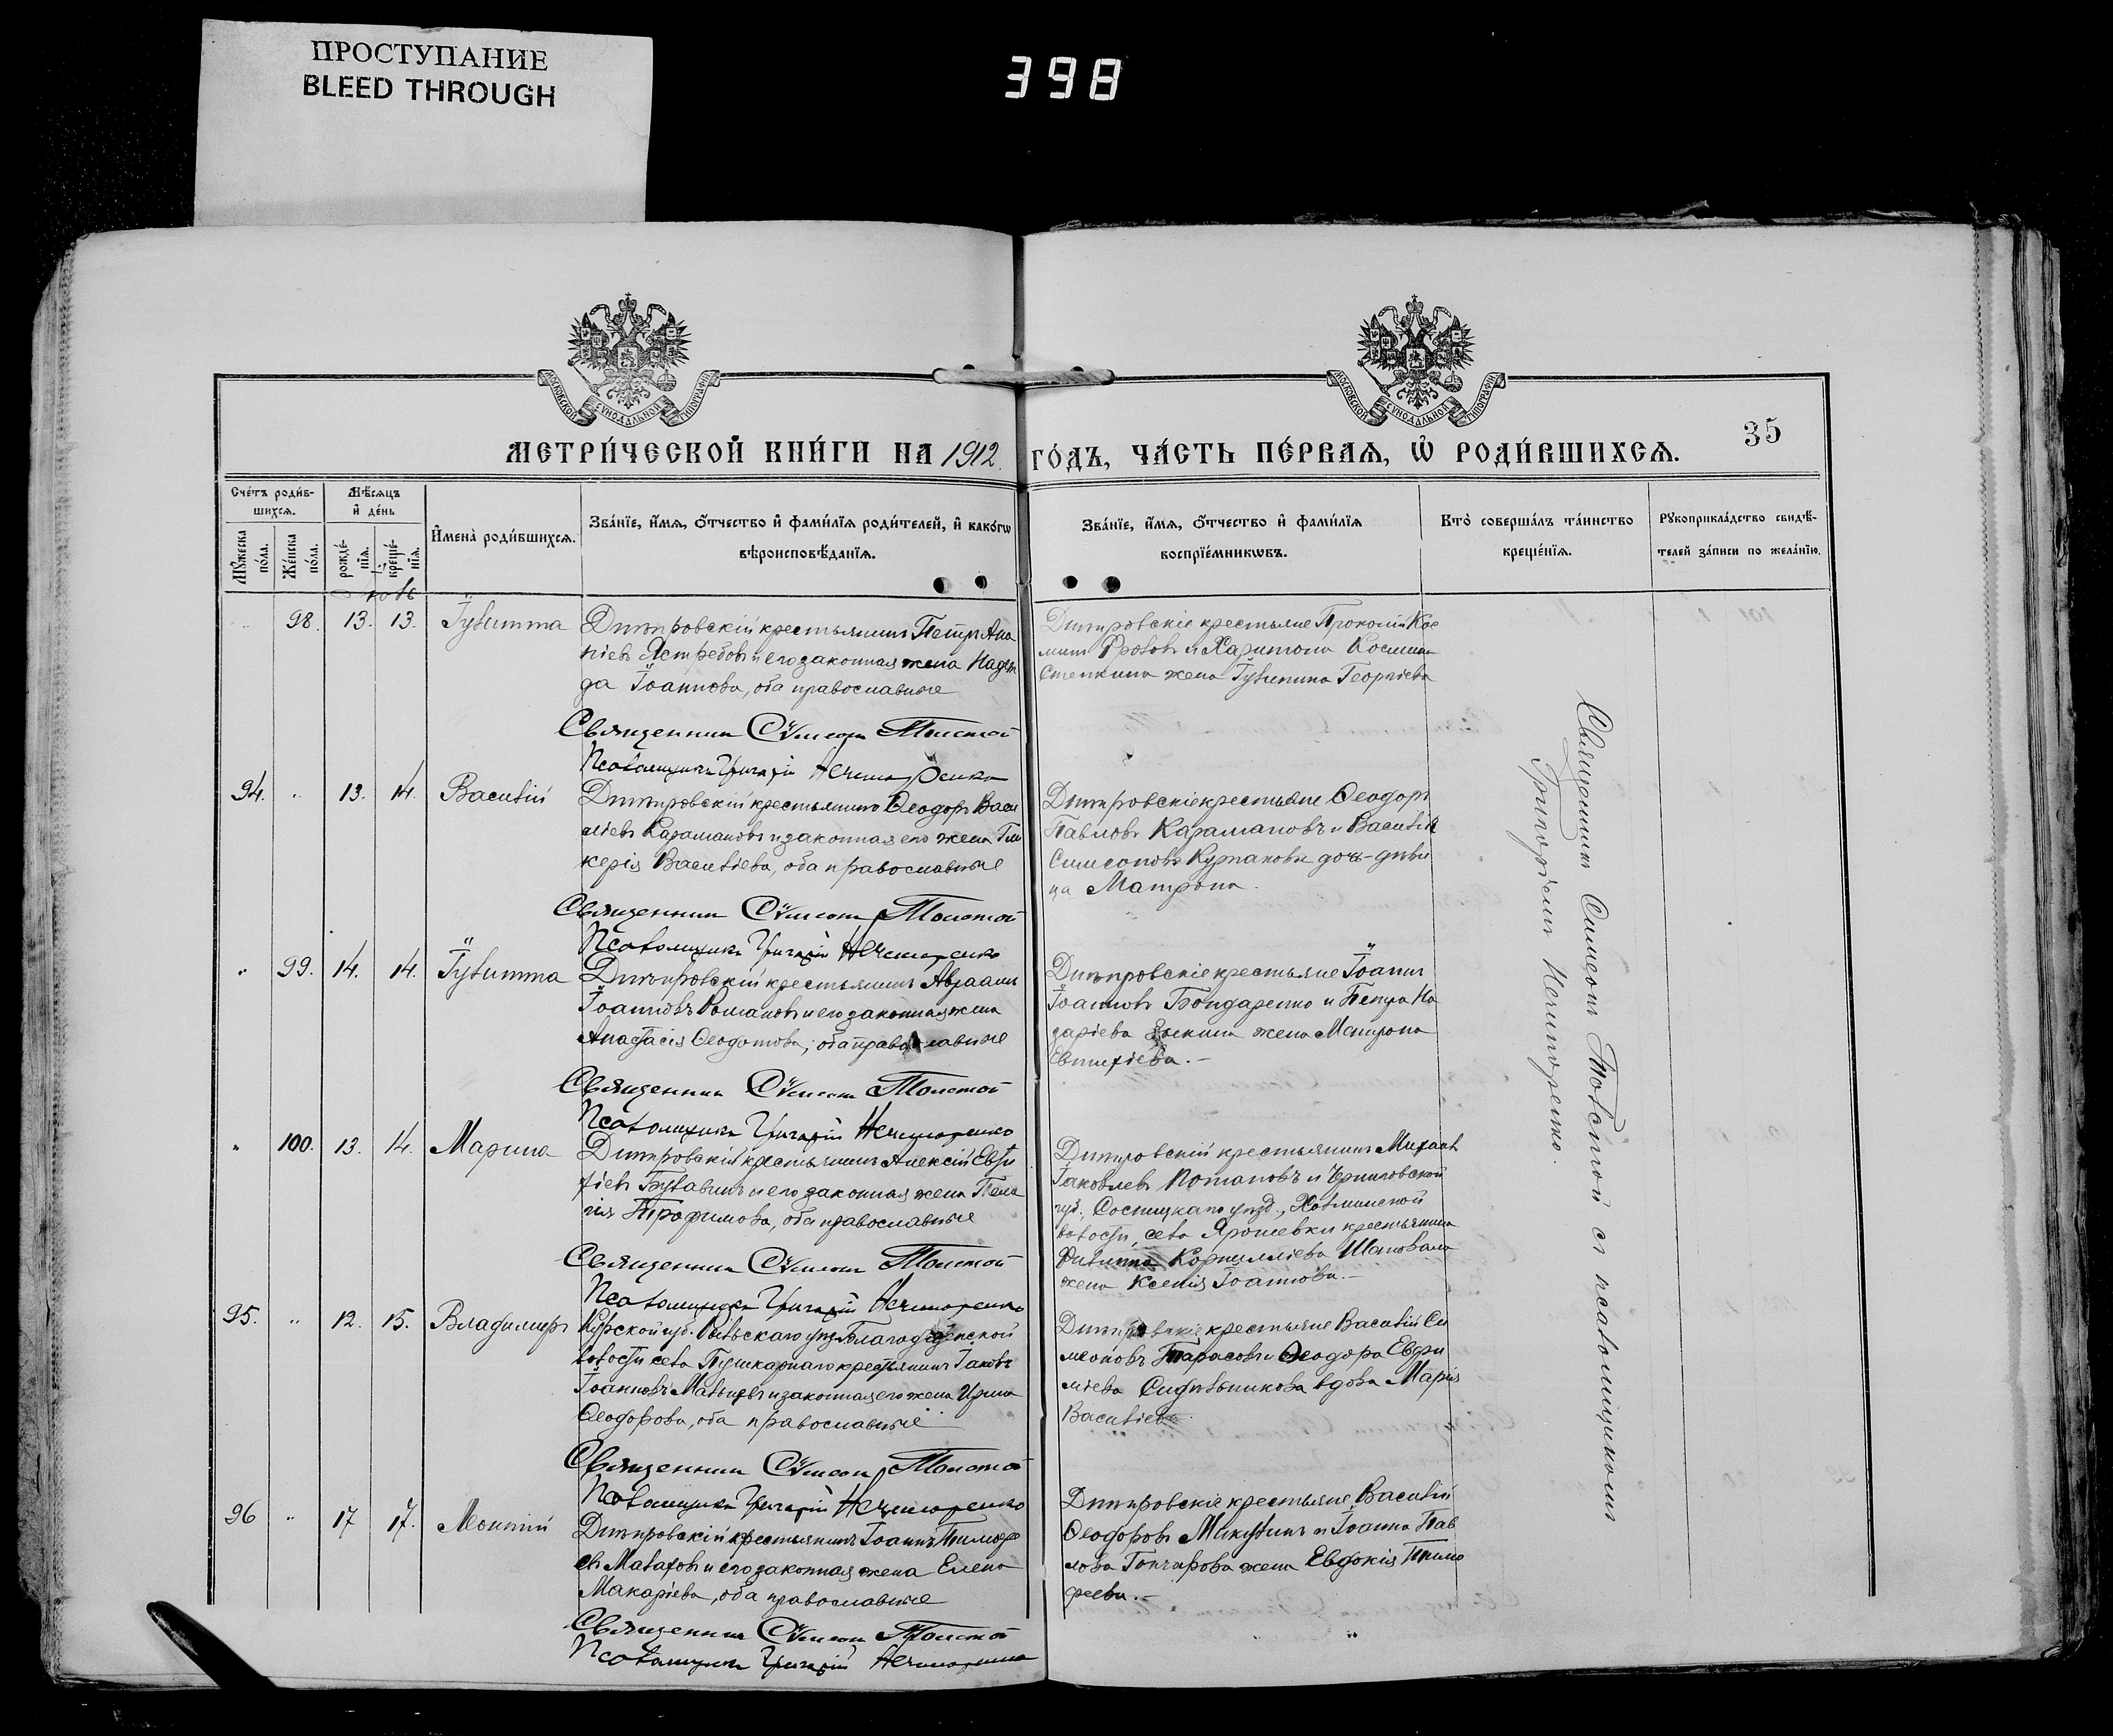 ПРОСТУПАНИЕ
BLEED THROUGH
398
МОСКОВСКОЙ СУНОДАЛЬНОЙ ТИПОГРАФІИ
МОСКОВСКОЙ СУНОДАЛЬНОЙ ТИПОГРАФІИ
35
МЕТРИ́ЧЕСКОЙ КНИ́ГИ НА 1912. ГО́ДЪ, ЧА́СТЬ ПЕ́РВАЯ, Ѡ҆ РОДИ́ВШИХСЯ.
Сче́тъ роди́в-
шихся.
Мѣ́сяцъ
и҆ де́нь
Мꙋ́жеска
по́ла.
Же́нска
по́ла.
рожде́-
нїя.
креще́-
нїя.
И҆мена̀ роди́вшихся.
Зва́нїе, и҆́мя, ѻ҆́тчество и҆ фами́лїя роди́телей, и҆ како́гѡ
вѣроисповѣ́данїя.
Зва́нїе, и҆́мя, ѻ҆́тчество и҆ фами́лїя
воспрїе́мникѡвъ.
Кто̀ соверша́лъ та́инство
креще́нїя.
Рꙋкоприкла́дство свидѣ́-
телей за́писи по жела́нїю.
98. 13. 13. Іулитта
Днѣпровскій крестьянинъ Петръ Ана
ніевъ Ястребовъ и его законная жена Надеж
да Іоаннова, оба православные
Священникъ Сѵмеонъ Толстой
Псаломщикъ Григорій Нечипоренко
Днѣпровскіе крестьяне Прокопій Кос
минъ Фроловъ и Харитона Космина
Степкина жена Іулитта Георгіева
94. " 13. 14. Василій
Днѣпровскій крестьянинъ Ѳеодоръ Васи
ліевъ Карамановъ и законная его жена Гли
керія Василіева, оба православные
Священникъ Сѵмеонъ Толстой
Псаломщикъ Григорій Нечипоренко
Днѣпровскіе крестьяне Ѳеодоръ
Павловъ Карамановъ и Василія
Симеонова дочь-дѣви
ца Матрона.
" 99. 14. 14. Іулитта
Днѣпровскій крестьянинъ Авраамъ
Іоанновъ Романовъ и его законная жена
Анастасія Ѳеодотова, оба православные
Священникъ Сѵмеонъ Толстой
Псаломщикъ Григорій Нечипоренко
Днѣпровскіе крестьяне Іоаннъ
Іоанновъ Бондаренко и Петра На
заріева жена Матрона
Евтихіева.-
" 100. 13. 14. Марина
Днѣпровскій крестьянинъ Алексій Евти
хіевъ Булавинъ и его законная жена Пела
гія Трофимова, оба православные
Священникъ Сѵмеонъ Толстой
Псаломщикъ Григорій Нечипоренко
Днѣпровскій крестьянинъ Михаилъ
Іаковлевъ Потаповъ и Черниговской
губ., Сосницкаго уѣзд.,
волости, села Ярошевки крестьянина
Филиппа Корнилліева Шаповала
жена Ксенія Іоаннова.-
95. " 12. 15. Владимиръ
Курской губ. Рыльскаго уѣз.
волости села Пушкарнаго крестьянинъ Іаковъ
Іоанновъ Мальцевъ и законная его жена Ирина
Ѳеодорова, оба православные
Священникъ Сѵмеонъ Толстой
Псаломщикъ Григорій Нечипоренко
Днѣпровскіе крестьяне Василій Си
меоновъ Тарасовъ и Ѳеодора Евфи
міева Сидѣльникова вдова Марія
Василіева.
96 " 17 17. Леонтій
Днѣпровскій крестьянинъ Іоаннъ Тимоѳе
евъ Малаховъ и его законная жена Елена
Макаріева, оба православные
Священникъ Сѵмеонъ Толстой
Псаломщикъ Григорій Нечипоренко
Днѣпровскіе крестьяне Василій
Ѳеодоровъ Микулинъ и Іоанна Пав
лова Гончарова жена Евдокія Тимо
феева.-
Священникъ Симеонъ Толстой съ псаломщикомъ
Григоріемъ Нечипоренко.